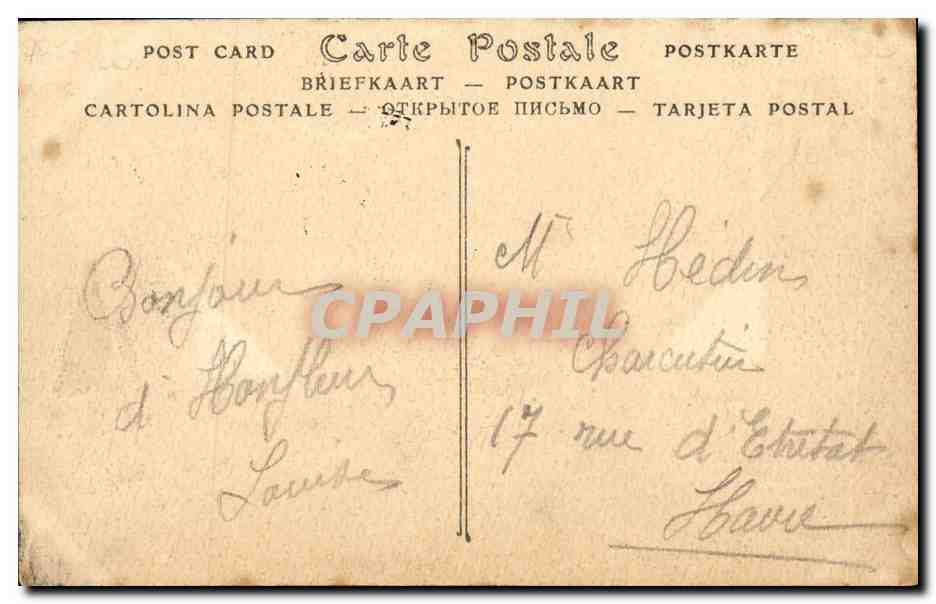 POST CARD Carte Postale POSTKARTE
BRIEFKAART — POSTKAART
CARTOLINA POSTALE — ОТКРЫТОЕ ПИСЬМО — TARJETA POSTAL
Bonjour
d'Honfleur
Louise
Mr Hédin
Charcutier
17 rue d'Etretat
Havre
CPAPHIL